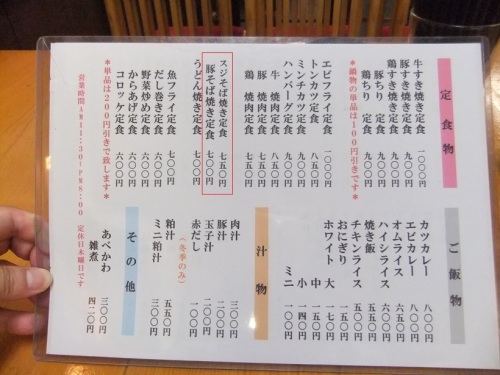 定食物
牛すき焼き定食 一〇〇〇円
豚すき焼き定食 九〇〇円
鶏すき焼き定食 九〇〇円
豚ちり 定食 九〇〇円
鶏ちり 定食 九〇〇円
＊鍋物の単品は100円引きです＊
エビフライ定食 一一〇〇円
トンカツ定食 八五〇円
ミンチカツ定食 九〇〇円
ハンバーグ定食 九〇〇円
牛 焼肉定食 八五〇円
豚 焼肉定食 七五〇円
鶏 焼肉定食 七五〇円
スジそば焼き定食 七五〇円
豚そば焼き定食 七〇〇円
うどん焼き定食 七〇〇円
魚フライ定食 七〇〇円
だし巻き定食 六〇〇円
野菜炒め定食 六〇〇円
からあげ定食 六〇〇円
コロッケ定食 六〇〇円
＊単品は200円引きで致します＊
営業時間AM11:30~PM8:00 定休日木曜日です
ご飯物
カツカレー 八〇〇円
エビカレー 八〇〇円
オムライス 六五〇円
ハイシライス 六五〇円
焼き飯 五五〇円
チキンライス 五五〇円
おにぎり 三〇〇円
ホワイト 大 一七〇円
中 一五〇円
小 一四〇円
ミニ
汁物
肉汁 三〇〇円
豚汁 二〇〇円
玉子汁 二〇〇円
赤だし 一〇〇円
(冬季のみ)
粕汁 五五〇円
ミニ粕汁 三〇〇円
その他
あべかわ 三〇〇円
雑煮 四二〇円